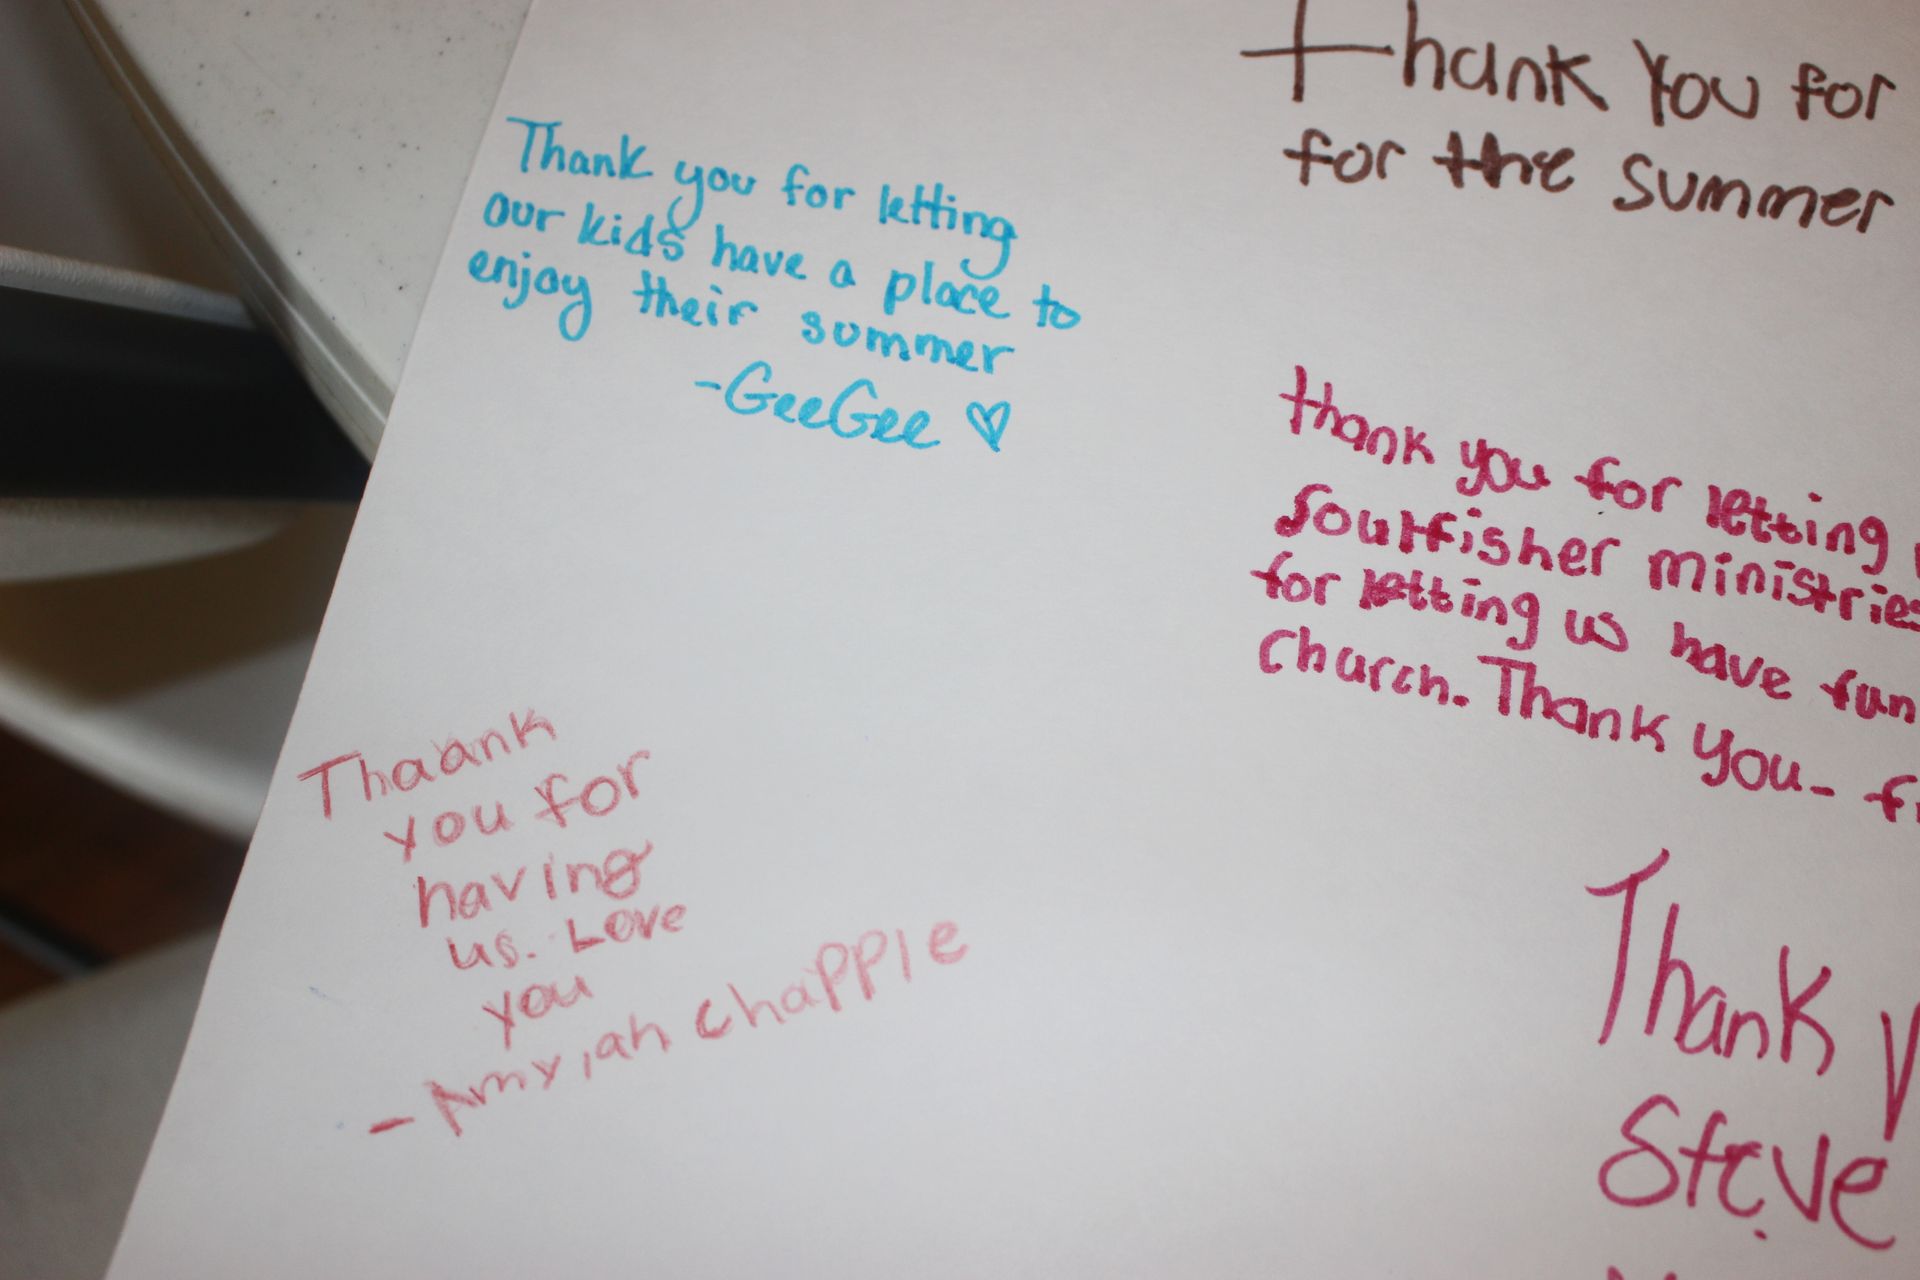 Thank you for
for the summer
Thank you for letting
our kids have a place to
enjoy their summer
-GeeGee
thank you for letting
Soulfisher ministries
for letting us have fun
Church. Thank you-
Thaank
you for
having
us. Love
you
- Amyiah chapple
Thank
Steve